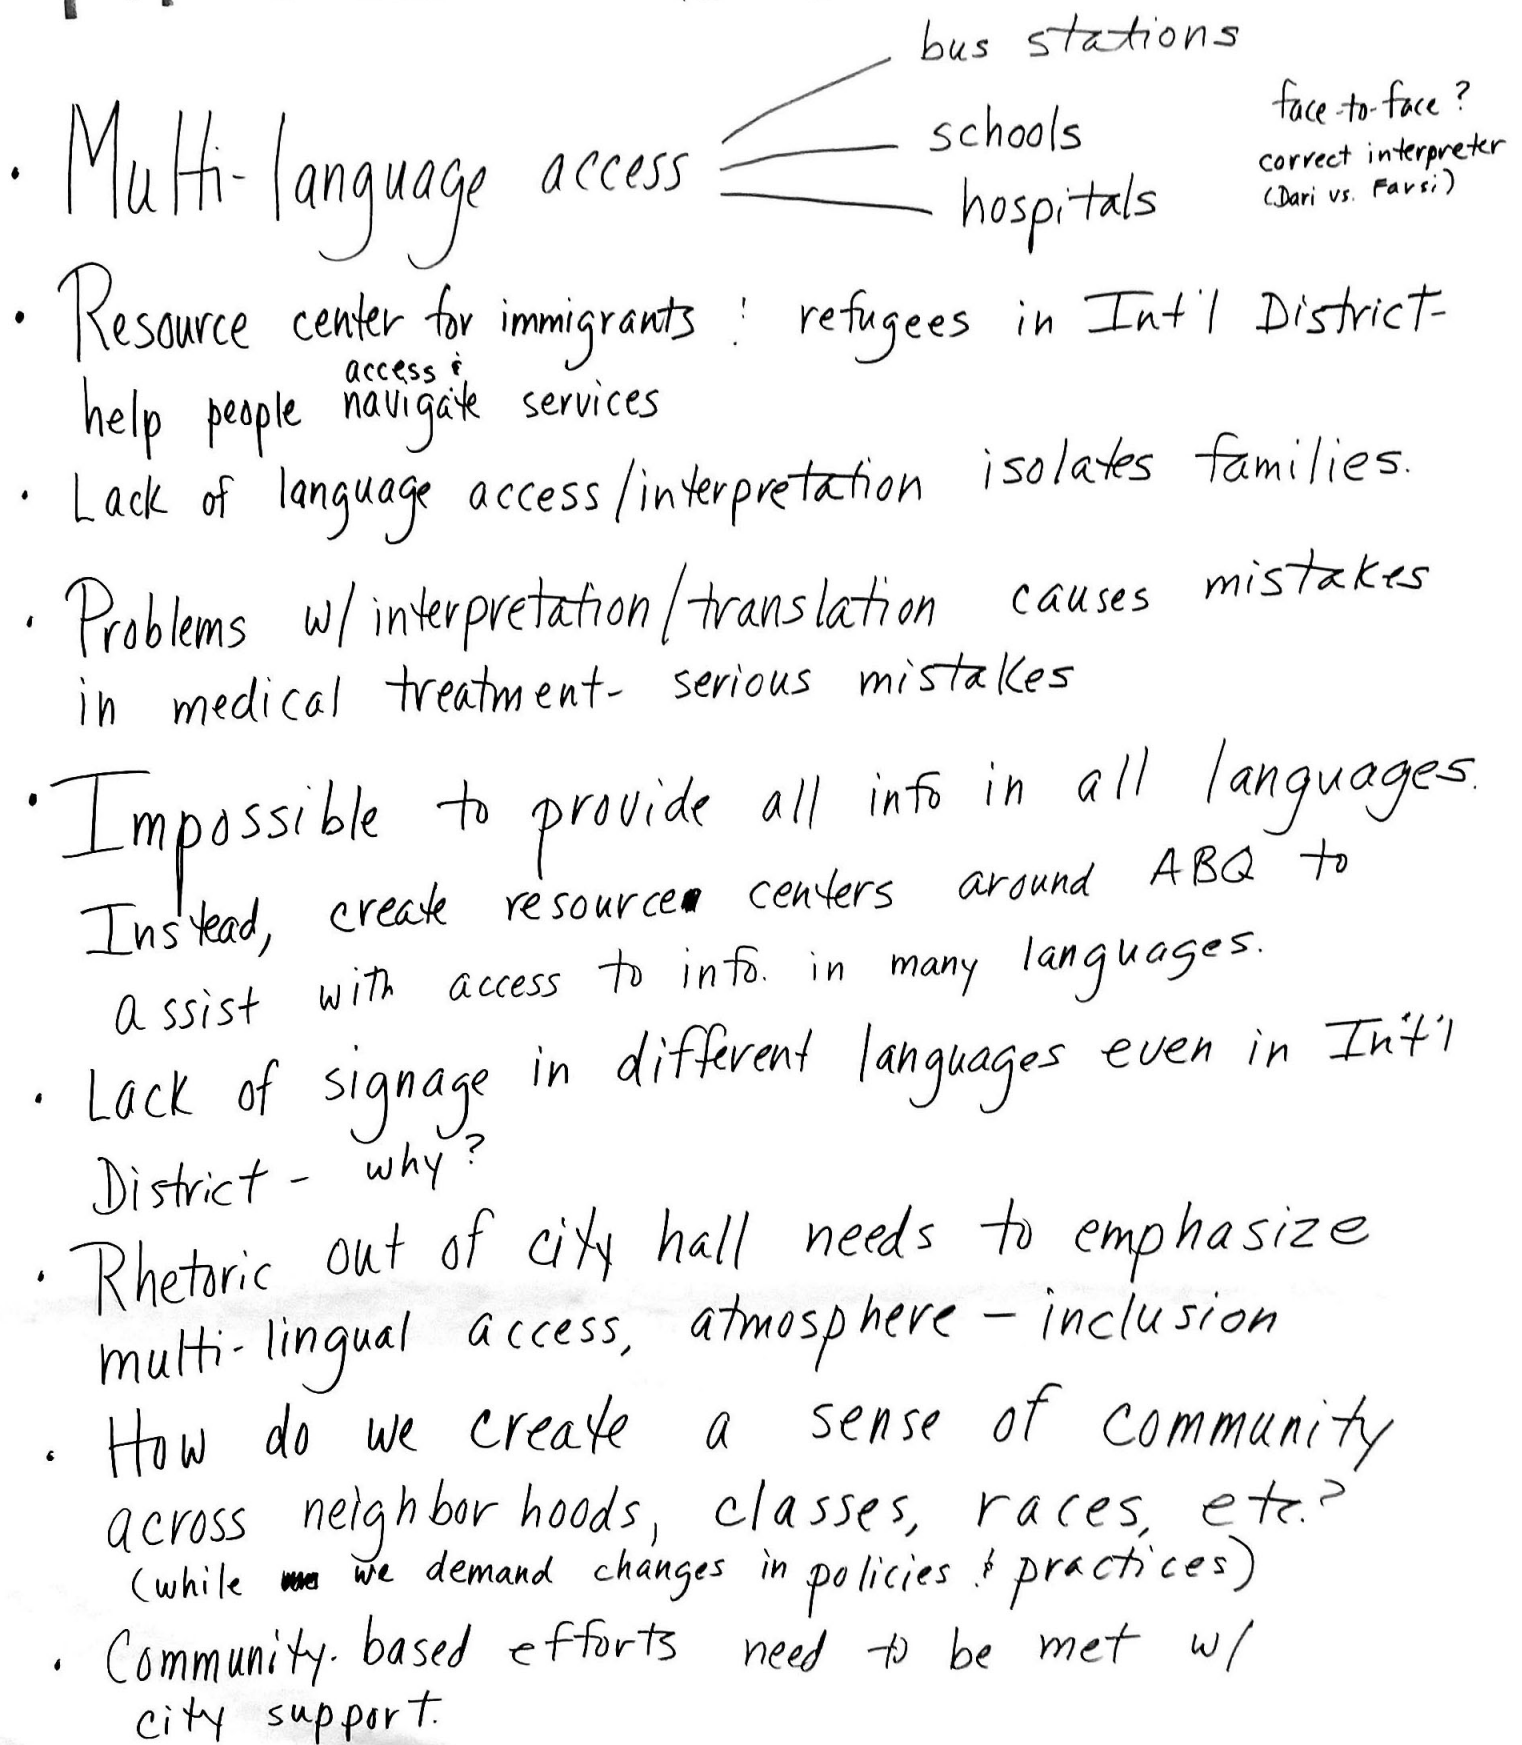 bus stations
• Multi-language access schools face-to-face?
hospitals correct interpreter
(Dari vs. Farsi)
• Resource center for immigrants & refugees in Int'l District-
access &
help people navigate services
• Lack of language access/interpretation isolates families.
• Problems w/ interpretation/translation causes mistakes
in medical treatment- serious mistakes
• Impossible to provide all info in all languages.
Instead, create resource centers around ABQ to
assist with access to info. in many languages.
• Lack of signage in different languages even in Int'l
District - why?
• Rhetoric out of city hall needs to emphasize
multi-lingual access, atmosphere - inclusion
• How do we create a sense of community
across neighborhoods, classes, races, etc.?
(while we demand changes in policies & practices)
• Community-based efforts need to be met w/
city support.